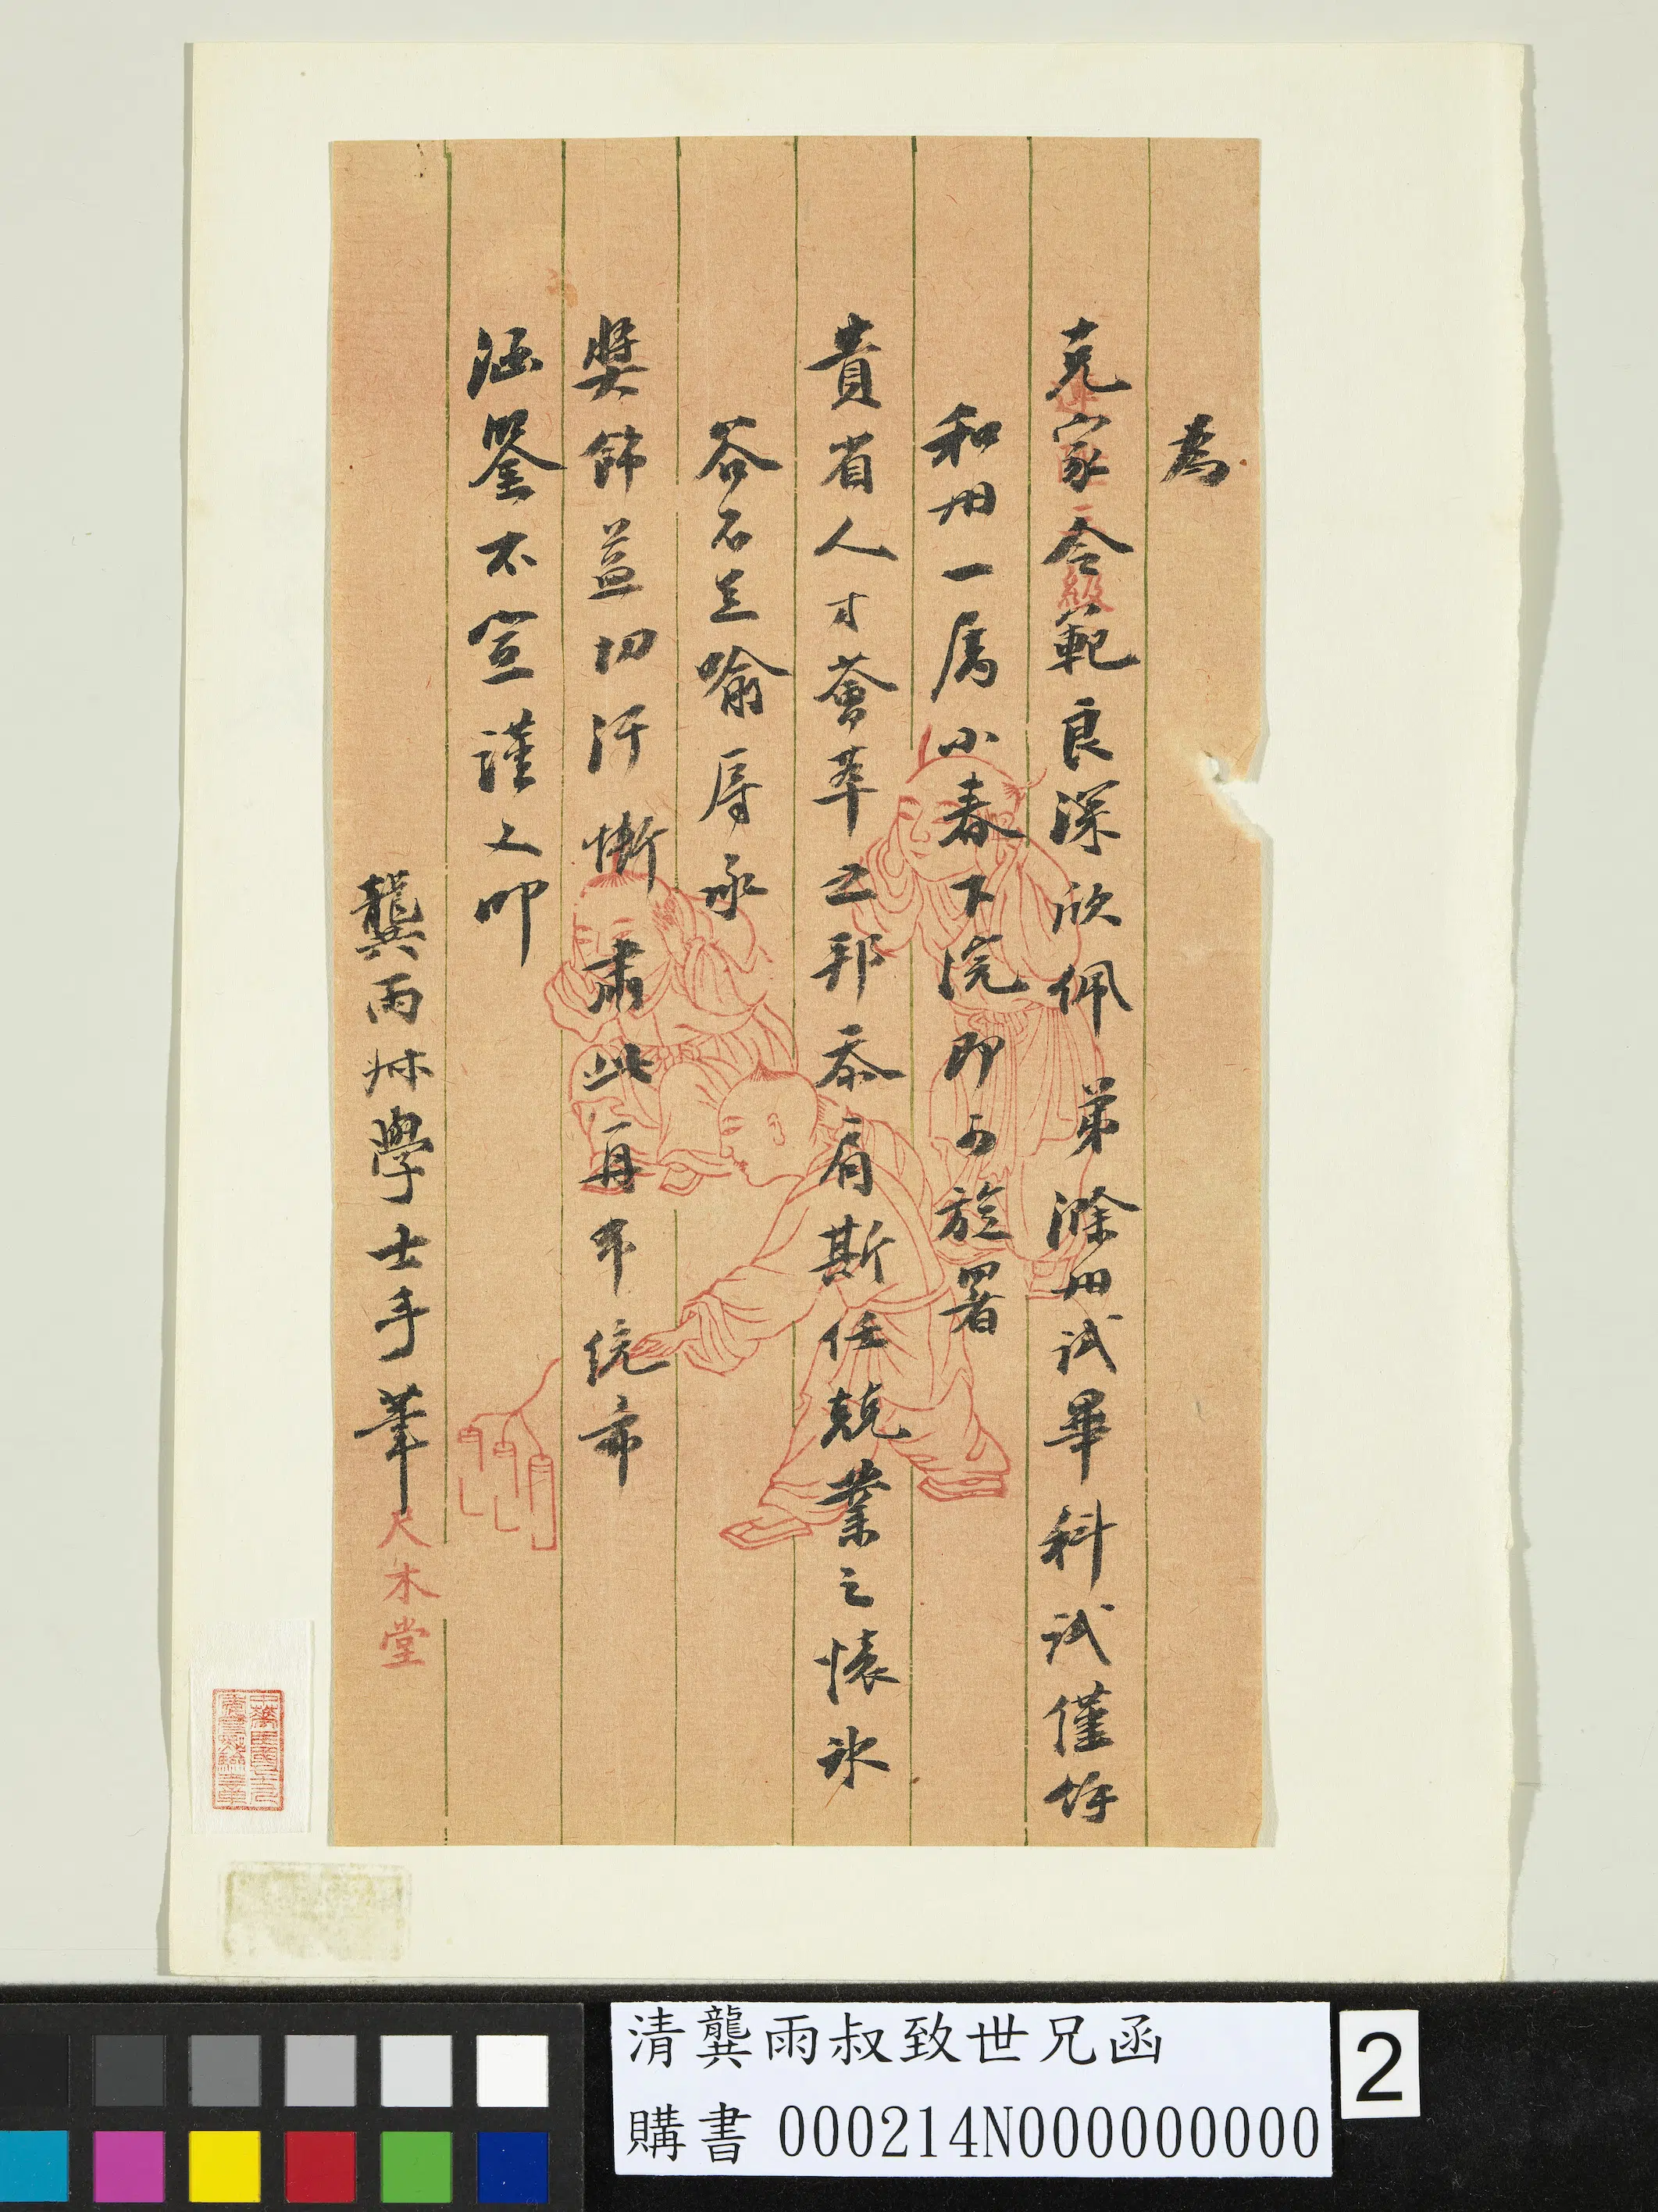 為
克家令範良深欣佩弟滁州試畢科試僅餘
和州一屬小春下浣即可旋署
貴省人才薈萃之邦忝肩斯任兢業之懷冰
谷不足喻辱承
獎飾益切汗慚肅此再布統希
涵鑒不宣謹又叩
龔雨叔學士手筆
尺木堂
清龔雨叔致世兄函
購書 000214N000000000
2